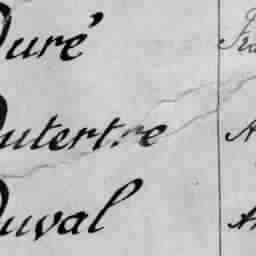 Duré
Dutertre
Duval